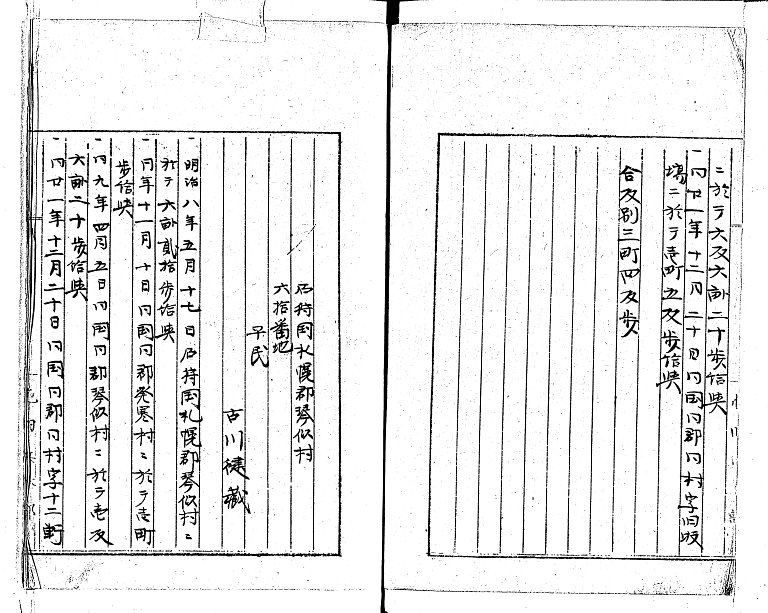 ニ於テ六反六畝二十歩給与
一同廿一年十二月二十日同国同郡同村字旧
場ニ於テ壱町五反歩給与
合反別三町四反歩
石狩国札幌郡琴似村
六拾番地
平民
古川
一明治八年五月十七日石狩国札幌郡琴似村ニ
於テ六畝貳拾歩給与
一同年十一月十日同国同郡発寒村ニ於テ壱町
歩給与
一同九年四月五日同国同郡琴似村ニ於テ壱反
六畝二十歩給与
一同廿一年十二月二十日同国同郡同村字十二軒